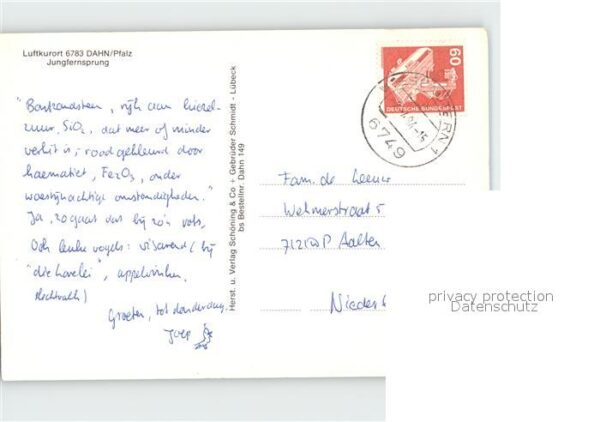 Luftkurort 6783 DAHN/Pfalz
Jungfernsprung
"Bontzandsteen, rijk aan kiezel-
zuur, SiO₂, dat meer of minder
verkit is; rood gekleurd door
haematiet, Fe₂O₃, onder
woestijnachtige omstandigheden."
Ja, zo gaat dat bij zo'n rots.
Ook leuke vogels: visarend (bij
"die Lorelei", appelvinken.
slechtvalk)
Groeten, tot donderdag.
Joep
Herst. u. Verlag Schöning & Co + Gebrüder Schmidt - Lübeck
bs Bestellnr. Dahn 149
60
DEUTSCHE BUNDESPOST
6749
Fam. de Leeuw
Welmerstraat 5
Aalten
privacy protection
Datenschutz